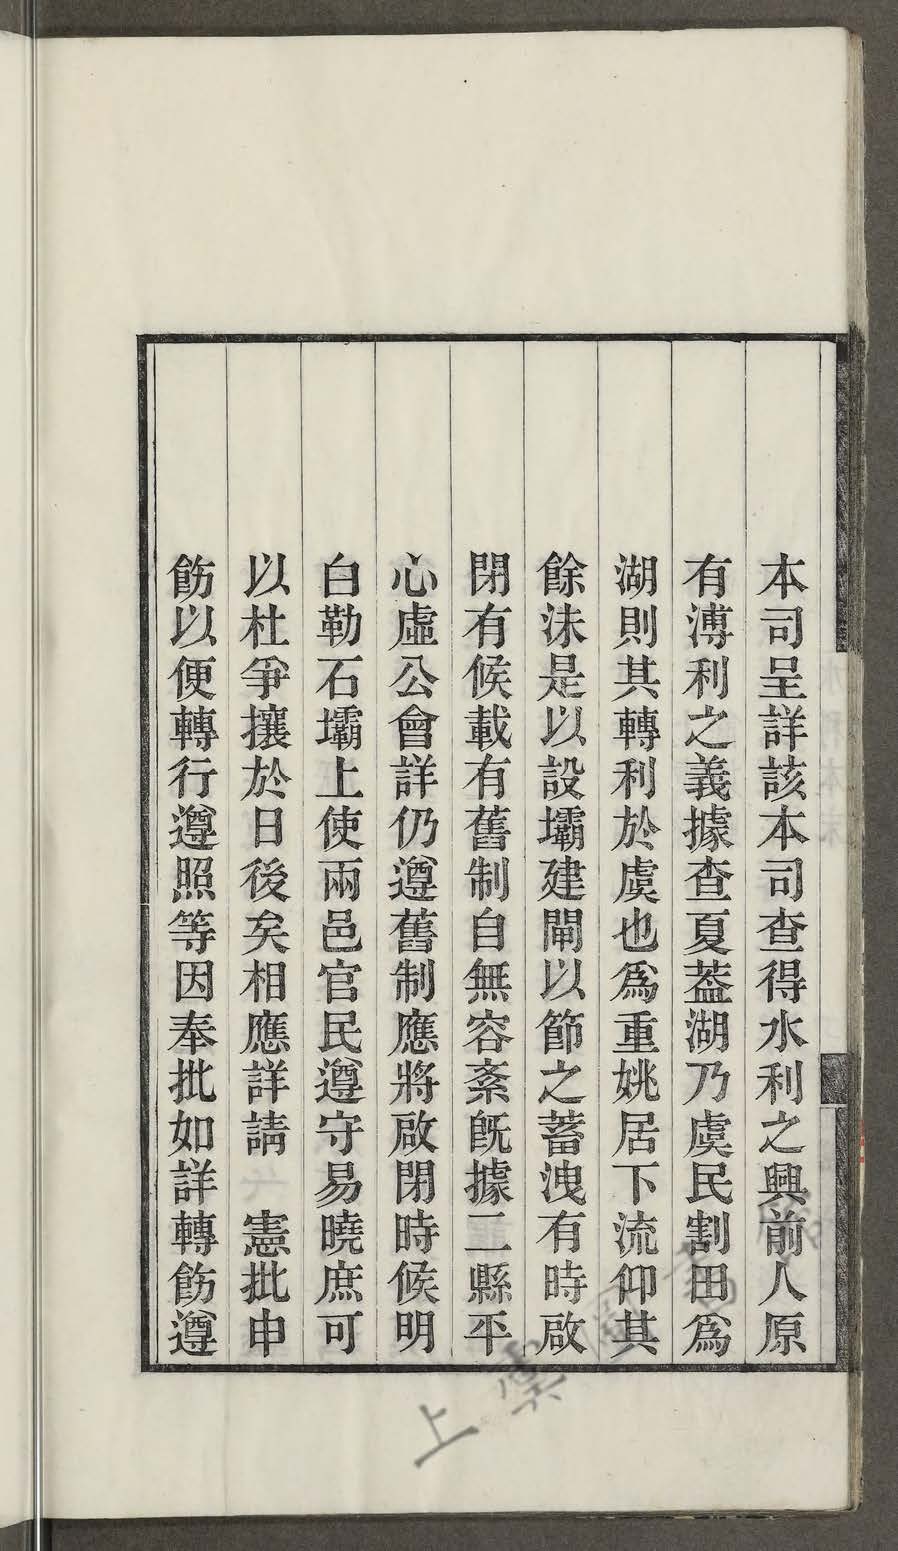 本司呈詳該本司查得水利之興前人原
有溥利之義據查夏葢湖乃虞民割田爲
湖則其轉利於虞也爲重姚居下流仰其
餘沫是以設壩建閘以節之蓄洩有時啟
閉有候載有舊制自無容紊旣據二縣平
心虛公會詳仍遵舊制應將啟閉時候明
白勒石壩上使兩邑官民遵守易曉庶可
以杜爭攘於日後矣相應詳請　憲批申
飭以便轉行遵照等因奉批如詳轉飭遵
上虞圖書